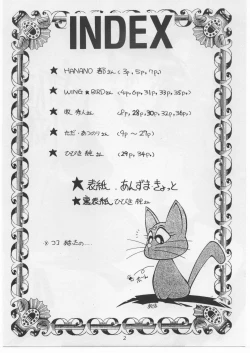 INDEX
★ HANANO さん (3p, 5p, 7p)
★ WING★BIRDさん (4p, 6p, 31p, 33p, 35p)
★ さん (8p, 28p, 30p, 32p, 36p)
★ ただ・あつのりさん (9p ~ 27p)
★ ひびき 純さん (29p, 34p)
★表紙 .. あんずま きょっと
★裏表紙 ひびき 純さん
2